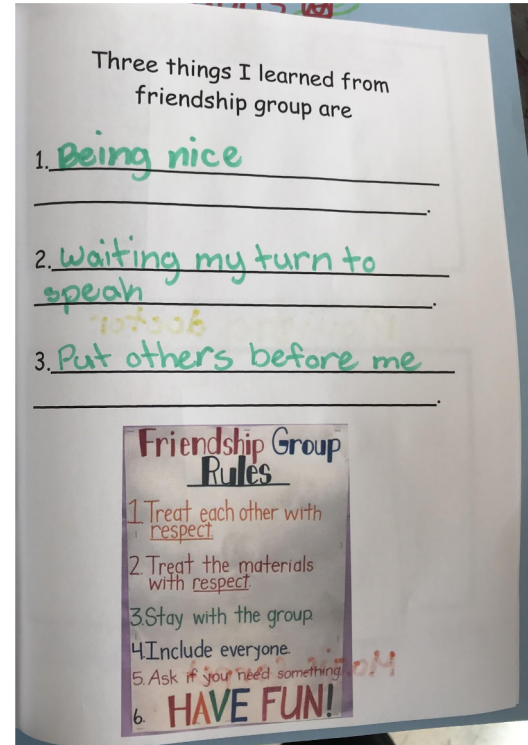 Three things I learned from
friendship group are
1. Being nice
2. waiting my turn to
speak.
3. Put others before me
.
Friendship Group
Rules
1. Treat each other with
respect.
2. Treat the materials
with respect.
3. Stay with the group.
4. Include everyone.
5. Ask if you need something.
6. HAVE FUN!